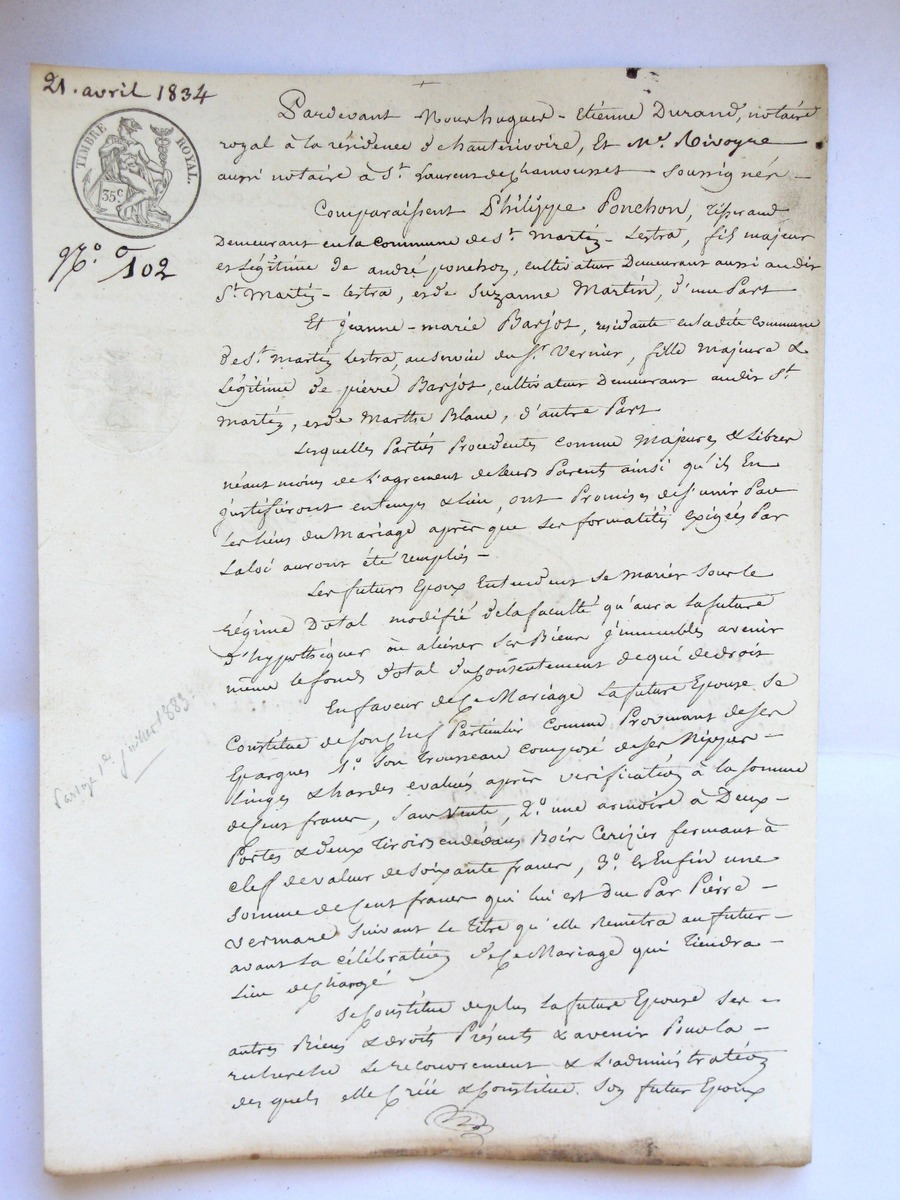 21. avril 1834
TIMBRE ROYAL.
35c
N.º 102
Pardevant Nous hugues - Etienne Durand, notaire
royal à la résidence de chantrivoire, Et Mr. Rivoyre
aussi notaire à St. Laurent de Chamousset soussignés -
Comparaissent Philippe Ponchon, tisserand
Demeurant en la commune de St. Martin - Lestra, fils majeur
et Légitime de andré ponchon, cultivateur Demeurant aussi audit
St. Martin - lestra, et de Suzanne Martin, d'une Part
Et jeanne - marie Barjot, résidante en ladite commune
de St. martin Lestra, au service du Sr. Vernier, fille majeure &
Légitime de pierre Barjot, cultivateur Demeurant audit St.
martin, et de Marthe Blanc, d'autre Part
Lesquelles Parties Procedentes comme Majeures & Libres
néant moins de L'agrement de leurs Parents ainsi qu'ils En
justifieront en temps & lieu, ont Promises de s'unir Par
Les liens du Mariage après que Les formalités Exigées Par
La loi auront été remplies -
Les futurs Epoux Entendent se marier sous le
régime Dotal modifié de la faculté qu'aura La future
D'hypothéquer ou aliéner ses Biens immeubles avenir
même le fonds dotal du Consentement de qui de droit
En faveur de Ce Mariage La future Epouse se
Constitue de son Chef Particulier comme Provenant de ses
Epargnes 1.º Son trousseau composé de ses Nippes -
linges & hardes evalués après vérification à la somme
de Cent francs, Sans vente, 2.º une armoire à Deux -
Portes & deux tiroirs en dedans Bois Cerizier fermant à
cleff de valeur de soixante francs, 3.º et Enfin une
somme de Cent francs qui lui est Due Par Pierre -
vermare suivant Le Titre qu'elle Remetra au futur -
avant La célébration de Ce Mariage qui Tiendra -
Lieu de Chargé
Se Constitue de plus La future Epouse ses -
autres Biens & droits Présents & avenir Pour la -
recherche Le recouvrement & L'administration
des quels elle Créé & Constitue Son futur Epoux
Partage 1er juillet 1883